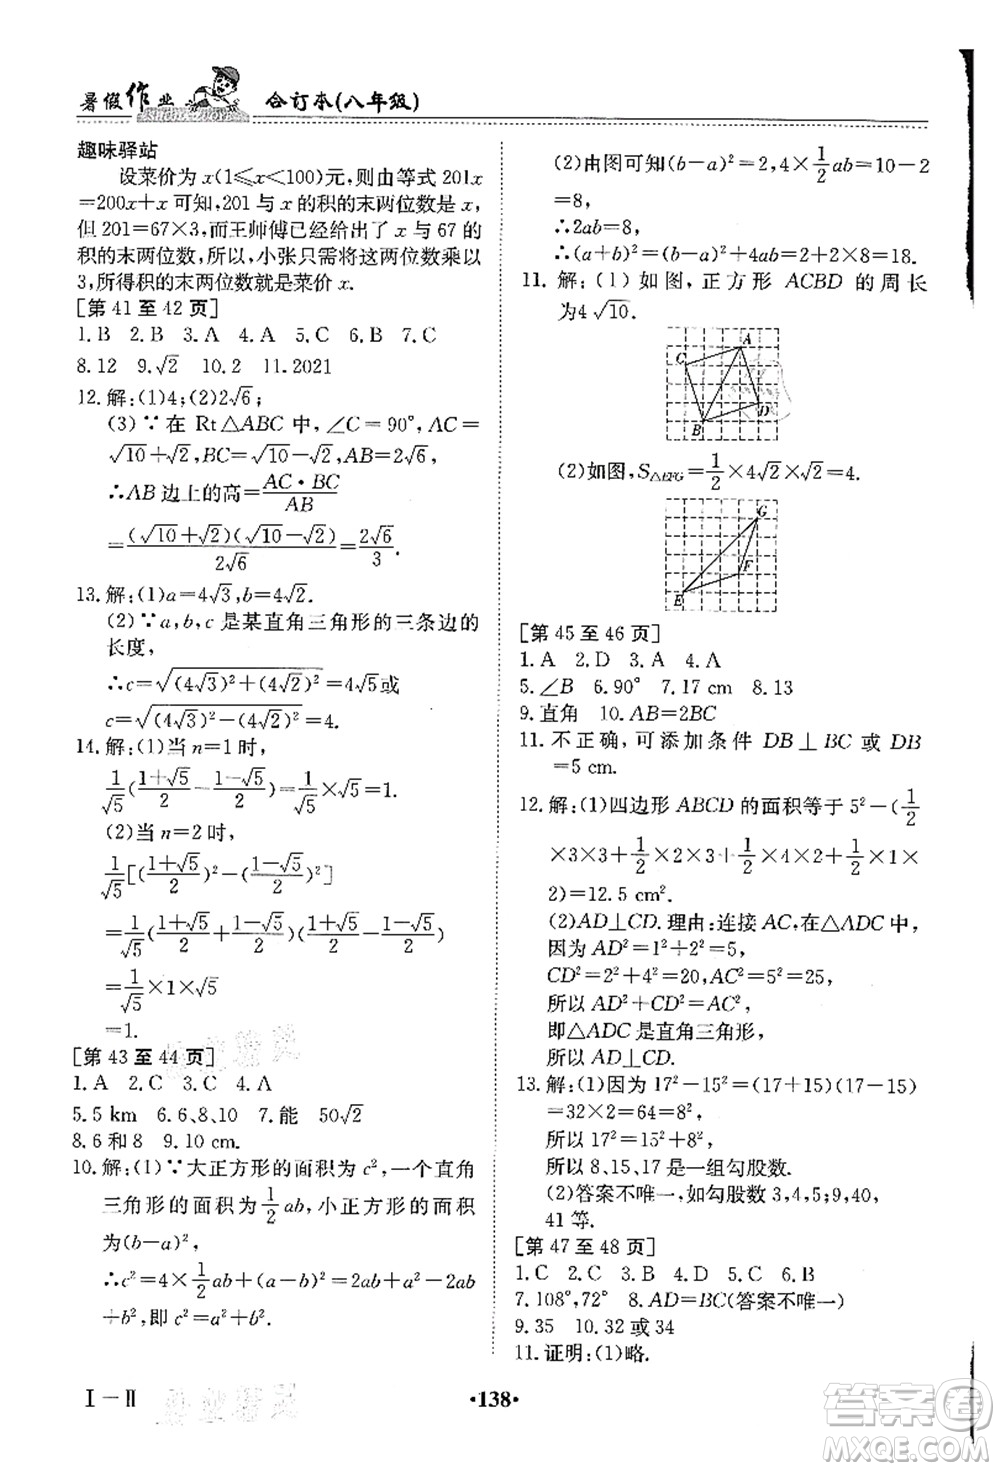 暑假作业 合订本(八年级)
SHUJIA ZUOYE
趣味驿站
设菜价为 x(1⩽x<100)元,则由等式 201x
=200x+x 可知,201 与 x 的积的末两位数是 x,
但 201=67×3,而王师傅已经给出了 x 与 67 的
积的末两位数,所以,小张只需将这两位数乘以
3,所得积的末两位数就是菜价 x.
[第 41 至 42 页]
1. B 2. B 3. A 4. A 5. C 6. B 7. C
8. 12 9. √2 10. 2 11. 2021
12. 解:(1)4;(2)2√6;
(3)∵在 Rt△ABC 中,∠C=90°,AC=
√10+√2,BC=√10-√2,
∴AB 边上的高=AC·BC/AB
=(√10+√2)(√10-√2)/2√6=2√6/3.
13. 解:(1)a=4√3,b=4√2.
(2)∵a,b,c 是某直角三角形的三条边的
长度,
∴c=√((4√3)²+(4√2)²)=4√5或
c=√((4√3)²-(4√2)²)=4.
14. 解:(1)当 n=1 时,
1/√5(1+√5/2-1-√5/2)=1/√5×√5=1.
(2)当 n=2 时,
1/√5[(1+√5/2)²-(1-√5/2)²]
=1/√5(1+√5/2+1-√5/2)(1+√5/2-1-√5/2)
=1/√5×1×√5
=1.
[第 43 至 44 页]
1. A 2. C 3. C 4. A
5. 5 km 6. 6、8、10 7. 能 50√2
8. 6 和 8 9. 10 cm.
10. 解:(1)∵大正方形的面积为 c²,一个直角
三角形的面积为1/2ab,小正方形的面积
为(b-a)²,
∴c²=4×1/2ab+(b-a)²=2ab+a²-2ab
+b²,即 c²=a²+b².
(2)由图可知(b-a)²=2,4×1/2ab=10-2
=8,
∴2ab=8,
∴(a+b)²=(b-a)²+4ab=2+2×8=18.
11. 解:(1)如图,正方形 ACBD 的周长
为4√10.
A
C
D
B
(2)如图,S△EFG=1/2×4√2×√2=4.
G
F
E
[第 45 至 46 页]
1. A 2. D 3. A 4. A
5. ∠B 6. 90° 7. 17 cm 8. 13
9. 直角 10. AB=2BC
11. 不正确,可添加条件 DB⊥BC 或 DB
=5 cm.
12. 解:(1)四边形 ABCD 的面积等于 5²-(1/2
×3×3+1/2×2×3+1/2×4×2+1/2×1×
2)=12.5 cm².
(2)AD⊥CD.理由:连接 AC,在△ADC 中,
因为 AD²=1²+2²=5,
CD²=2²+4²=20,AC²=5²=25,
所以 AD²+CD²=AC²,
即△ADC 是直角三角形,
所以 AD⊥CD.
13. 解:(1)因为 17²-15²=(17+15)(17-15)
=32×2=64=8²,
所以 17²=15²+8²,
所以 8,15,17 是一组勾股数.
(2)答案不唯一,如勾股数 3,4,5;9,40,
41 等.
[第 47 至 48 页]
1. C 2. C 3. C 4. D 5. B 6. C
7. 108°,72° 8. AD=BC(答案不唯一)
9. 35 10. 32 或 34
11. 证明:(1)略.
Ⅰ-Ⅱ
·138·
答案圈
MXQE.COM